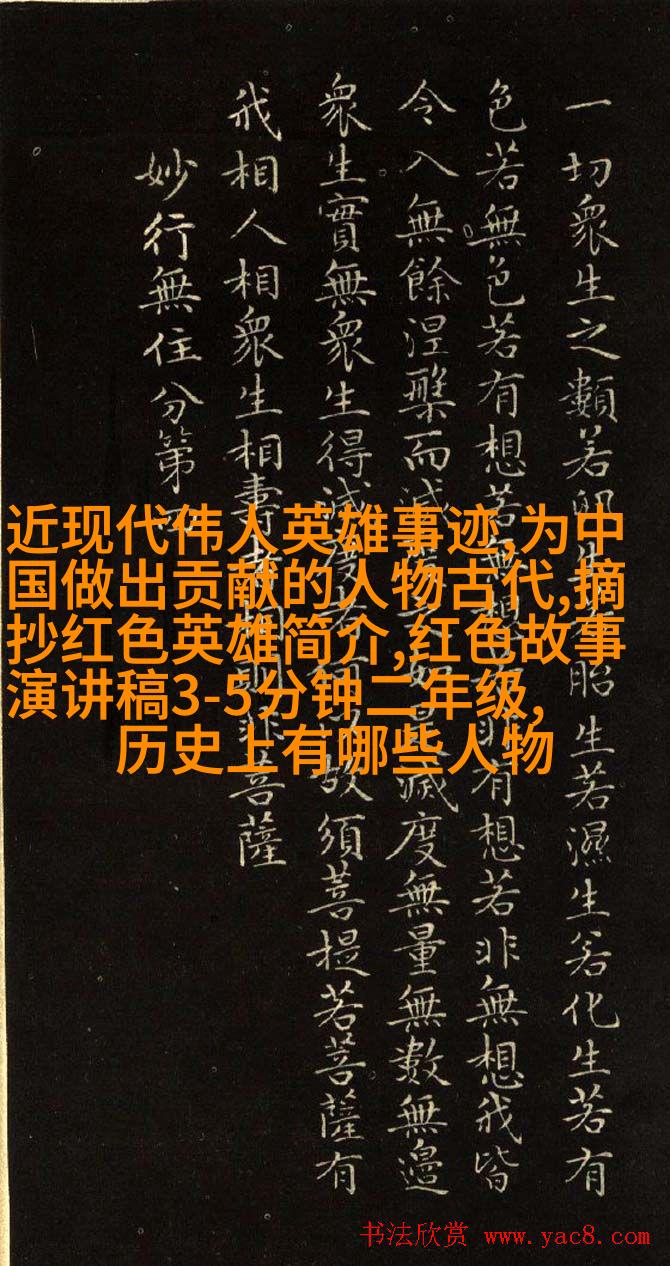 一切衆生之類若卵生胎生若濕生若化生若有
色若無色若有想若無想非有想若非無想我皆
令入無餘涅槃而滅如是滅度無量無數無邊
衆生實無衆生得滅度何故須菩提若菩薩有
我相人相衆生相壽非菩薩
妙行無住分第
近现代伟人英雄事迹,为中
国做出贡献的人物古代,摘
抄红色英雄简介,红色故事
演讲稿3-5分钟二年级,
历史上有哪些人物
书法欣赏 www.yac8.com